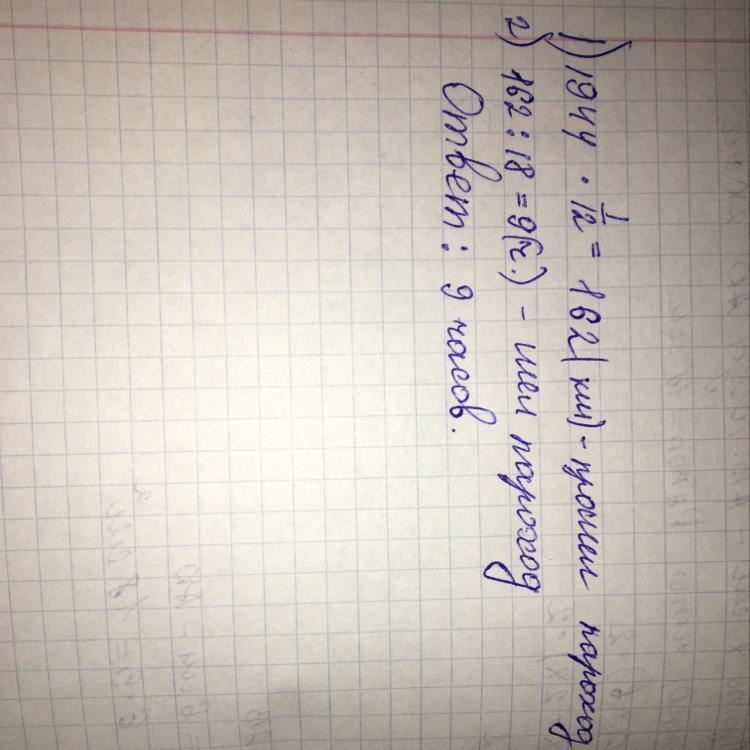 1) 1944 · 1/12 = 162 (км) - прошел пароход
2) 162 : 18 = 9 (ч.) - шел пароход
Ответ: 9 часов.